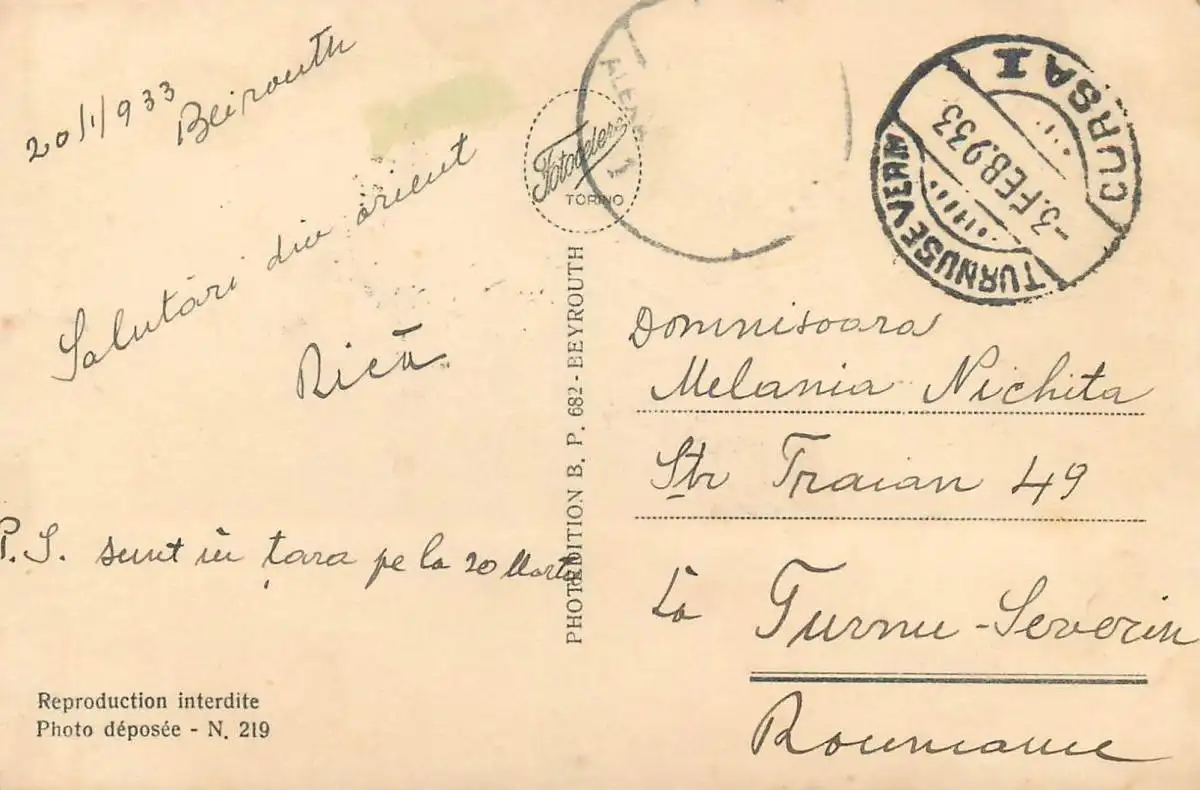 20/1/933
Beirouth
Salutări din orient
Rică
P.S. sunt în țara pe la 20 Martie
Reproduction interdite
Photo déposée - N. 219
Fotocelere
TORINO
PHOTEDITION B. P. 682 - BEYROUTH
TURNU SEVERIN
CURSA I
-3.FEB.933
Domnisoara
Melania Nichita
Str Traian 49
La Turnu-Severin
Roumanie